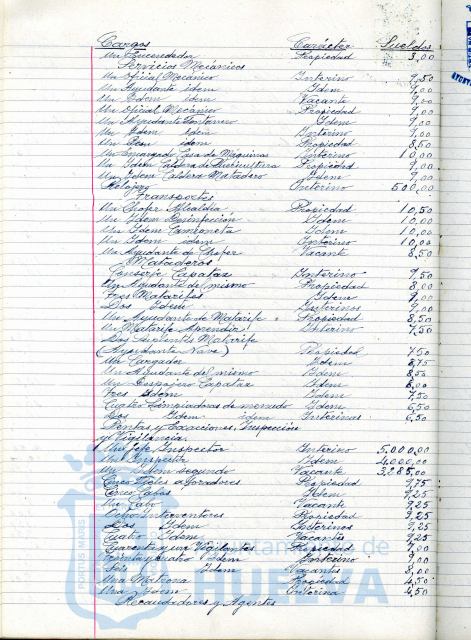 Cargos Carácter Sueldos
Un Encendedor Propiedad 3,00
Servicios Mecánicos
Un Oficial Mecánico Interino 9,50
Un Ayudante idem Idem 9,00
Un Idem idem Vacante 9,00
Un Oficial Mecánico Propiedad 9,00
Un Ayudante Fontanero Idem 9,00
Un Idem idem Interino 9,00
Un Peon idem Propiedad 8,50
Un Encargado Casa de Maquinas Interino 10,00
Un Idem Caldera de Puericultura Propiedad 9,00
Un Idem Caldera Matadero Idem 9,00
Relojero Interino 500,00
Transportes
Un Chofer Alcaldia Propiedad 10,50
Un Idem Desinfección Idem 10,00
Un Idem Camioneta Idem 10,00
Un Idem idem Interino 10,00
Un Ayudante de Chofer Vacante 8,50
Mataderos
Conserje Capataz Interino 9,50
Un Ayudante del mismo Propiedad 8,00
Tres Matarifes Idem 9,00
Dos Idem Interinos 9,00
Un Ayudante de Matarife Propiedad 8,50
Un Matarife Aprendiz Interino 7,50
Dos Sirvientes Matarife
(Ayudante Nave) Propiedad 7,50
Un Pesador Idem 8,75
Un Ayudante del mismo Idem 8,50
Un Despojero Capataz Idem 8,00
Tres Idem Idem 7,50
Cuatro Limpiadoras de menudo Idem 6,50
Dos Idem idem Interinas 6,50
Rentas y Exacciones, Inspección
y Vigilancia
Un Jefe Inspector Interino 5.000,00
Un Inspector Idem 4.000,00
Un Idem segundo Vacante 3.285,00
Cinco Fieles aforadores Propiedad 9,75
Cinco Cabos Idem 9,25
Un Cabo Vacante 9,25
Ocho Interventores Propiedad 9,25
Dos Idem Interinos 9,25
Cuatro Idem Vacantes 9,25
Cuarenta y un Vigilantes Propiedad 9,00
Treinta y cuatro Idem Interino 9,00
Seis Idem Vacantes 8,00
Una Matrona Propiedad 4,50
Una Idem Interina 4,50
Recaudadores y Agentes
Ayuntamiento de
HUELVA
PORTUS MARIS